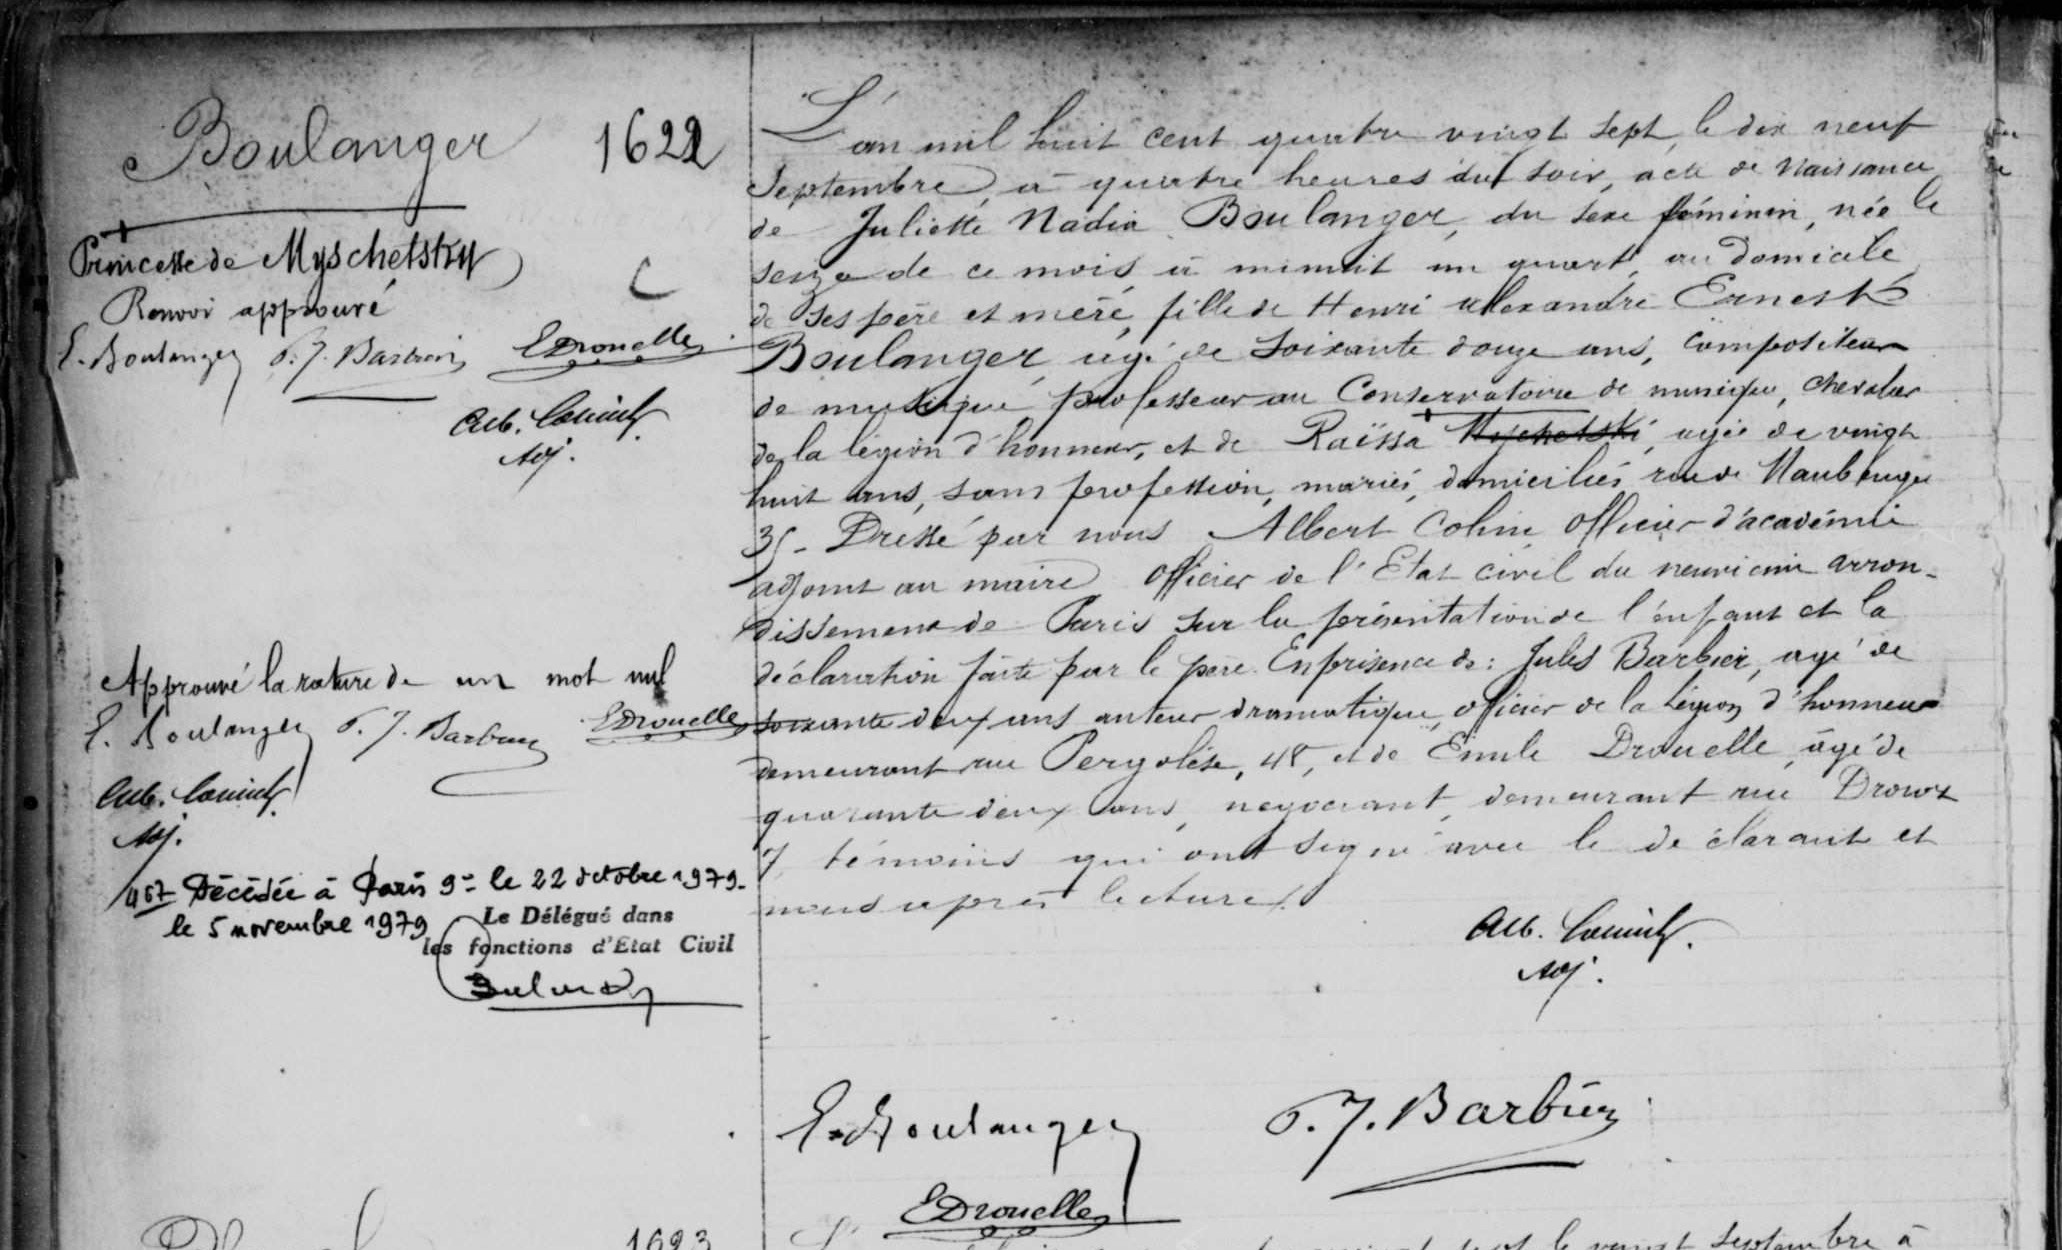 Boulanger 1622
Princesse de Myschetsky
Renvoi approuvé
E. Boulanger P. J. Barbier EDrouelle
Alb.
Adj.
Approuvé la rature de un mot nul
E. Boulanger P. J. Barbier EDrouelle
Alb.
Adj.
467 Décédée à Paris 9e le 22 octobre 1979.
le 5 novembre 1979
Le Délégué dans
les fonctions d'Etat Civil
L'an mil huit cent quatre vingt sept, le dix neuf
Septembre, à quatre heures du soir, acte de naissance
de Juliette Nadia Boulanger, du sexe féminin, née le
seize de ce mois, à minuit un quart, au domicile
de ses père et mère, fille de Henri alexandre Ernest
Boulanger, agé de soixante douze ans, compositeur
de musique professeur au Conservatoire de musique, chevalier
de la légion d'honneur, et de Raïssa Myschetski, agée de vingt
huit ans, sans profession, mariés, domiciliés rue de Maubeuge
35 - Dressé par nous Albert Officier d'académie
adjoint au maire Officier de l'Etat civil du neuvième arron-
dissement de Paris sur la présentation de l'enfant et la
déclaration faite par le père. En présence de : Jules Barbier, agé de
soixante deux ans auteur dramatique, officier de la Légion d'honneur
demeurant rue Pergolèse, 48, et de Emile Drouelle, âgé de
quarante deux ans, négociant, demeurant rue Drouot
7, témoins qui ont signé avec le déclarant et
nous après lecture.
Alb.
Adj.
E. Boulanger P. J. Barbier
EDrouelle
1623
le vingt Septembre à